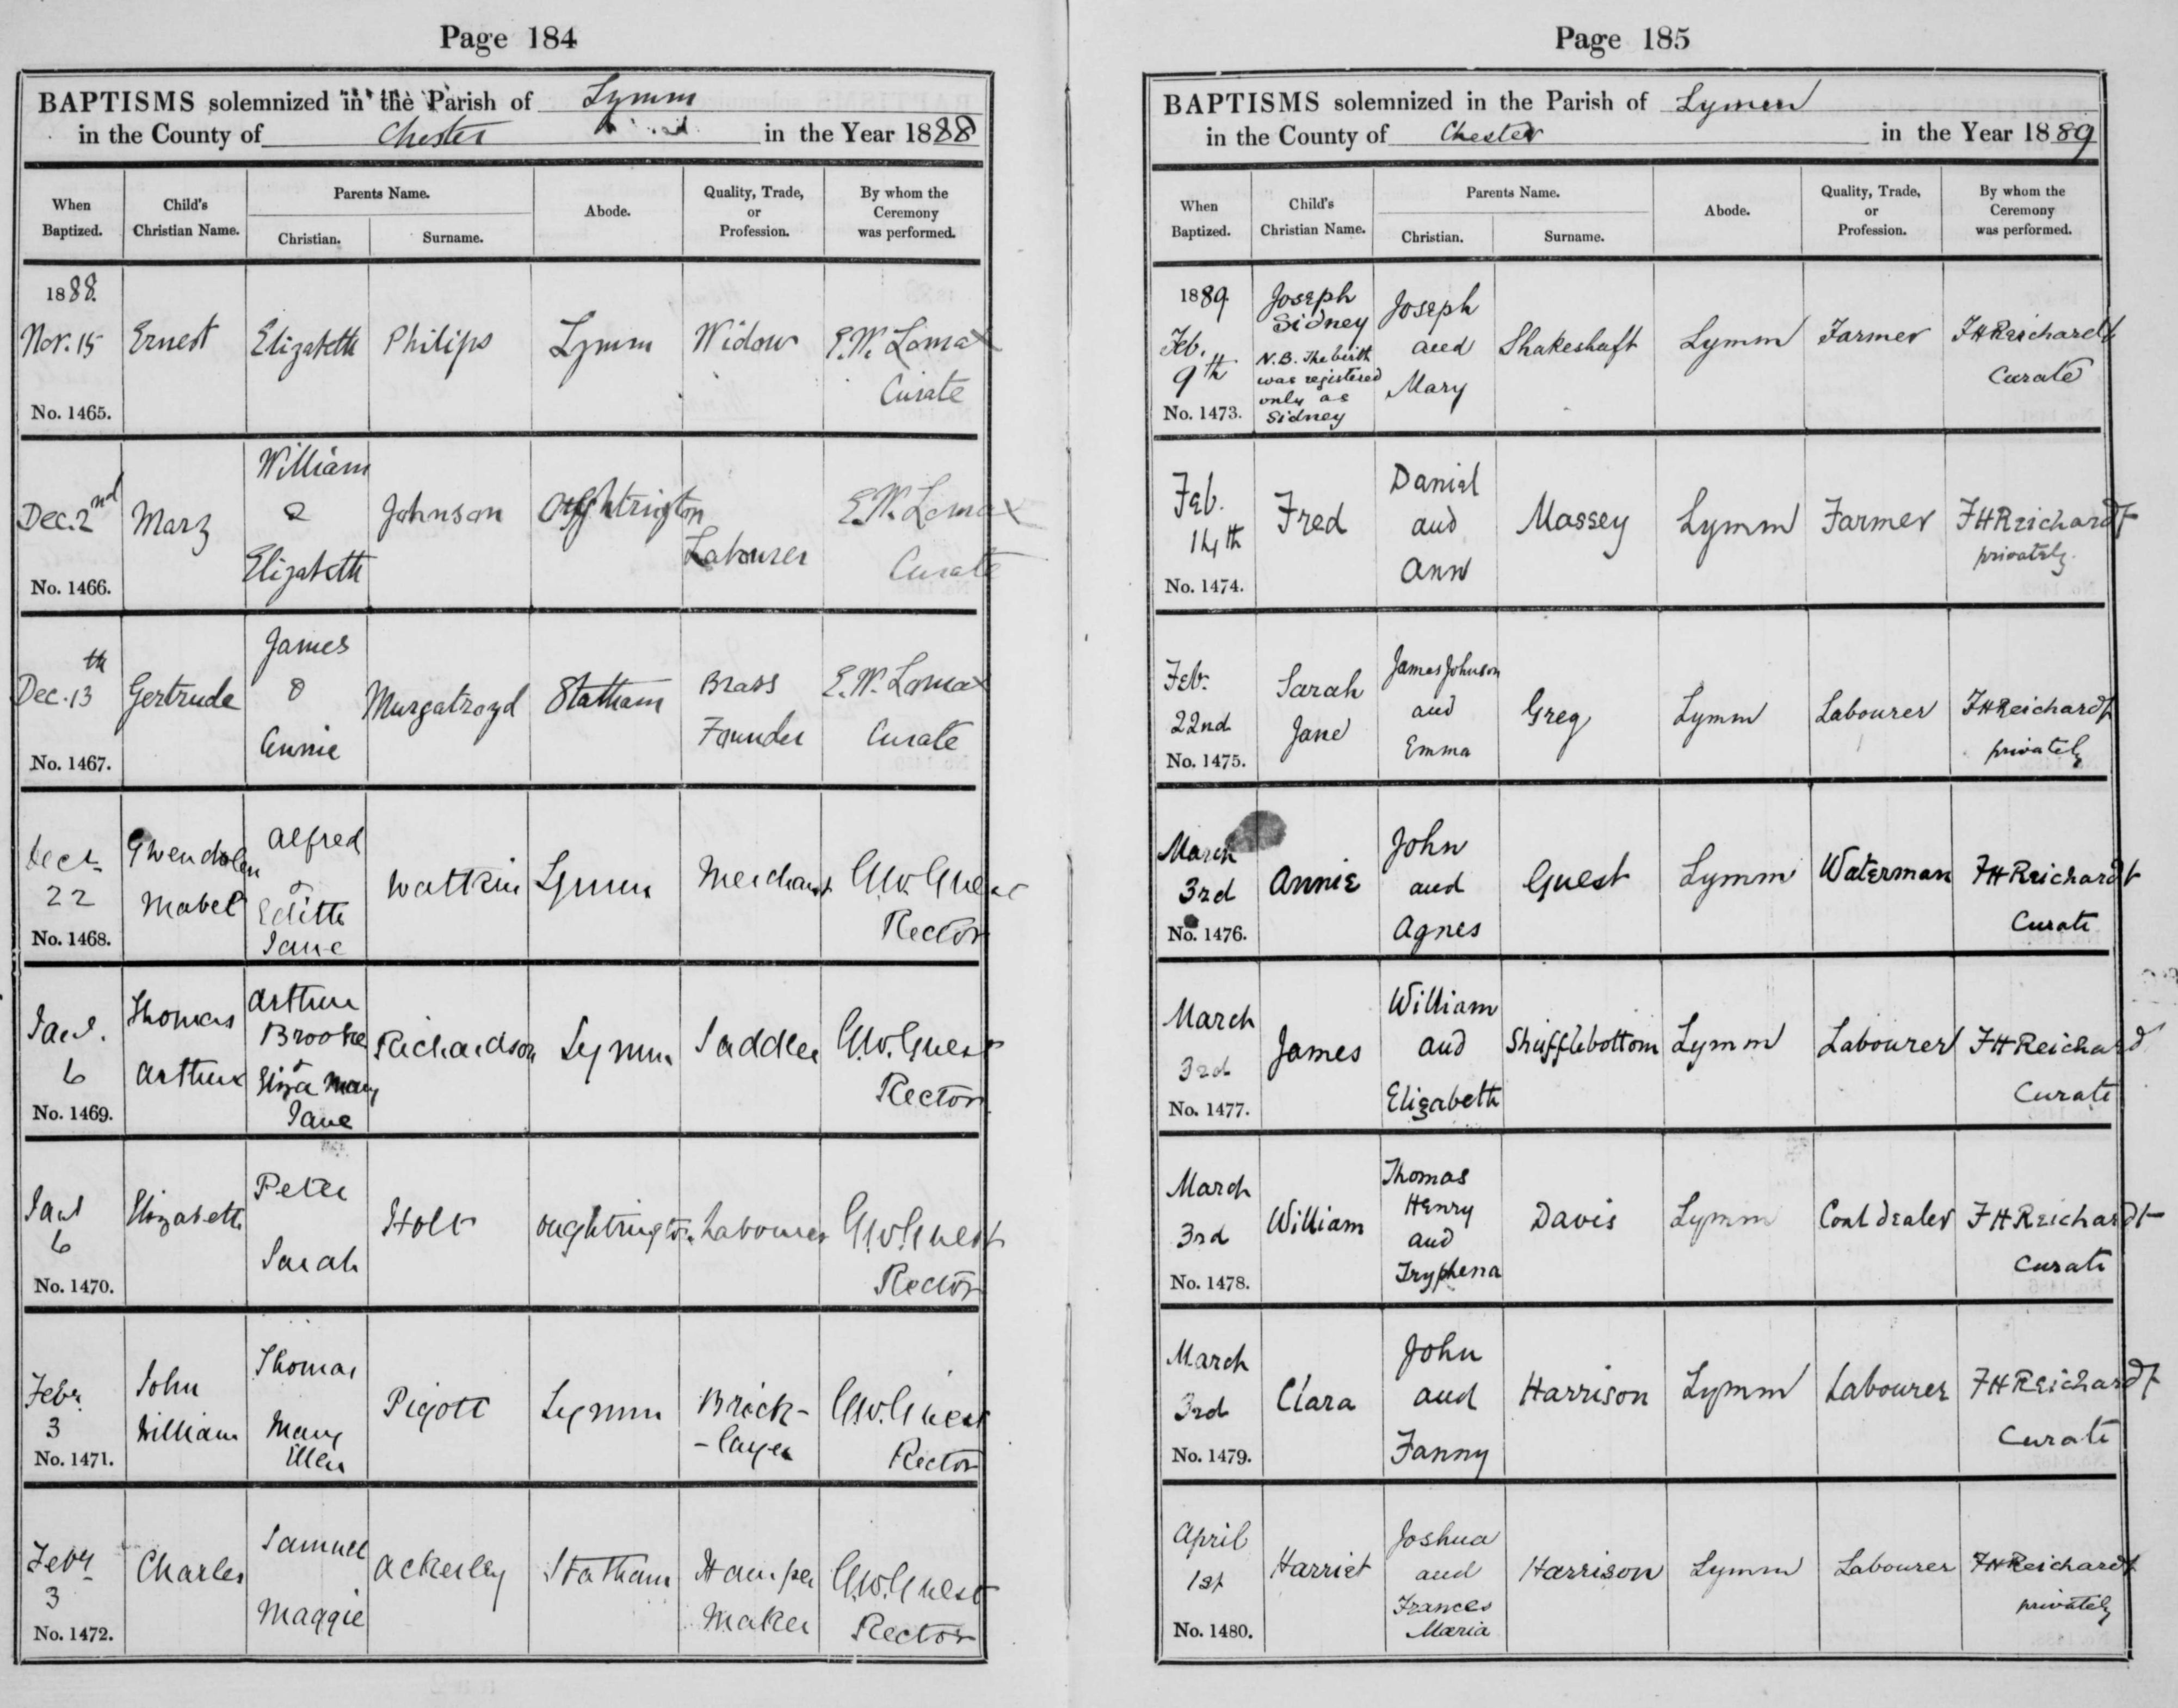 Page 184
BAPTISMS solemnized in the Parish of Lymm
in the County of Chester in the Year 1888
When Baptized.
Child's Christian Name.
Parents Name.
Christian.
Surname.
Abode.
Quality, Trade, or Profession.
By whom the Ceremony was performed.
1888.
Nov. 15
No. 1465.
Ernest
Elizabeth
Philips
Lymm
Widow
E.W. Lomax
Curate
Dec. 2nd
No. 1466.
Mary
William
&
Elizabeth
Johnson
Oughtrington
Labourer
E.W. Lomax
Curate
Dec. 13th
No. 1467.
Gertrude
James
&
Annie
Murgatroyd
Statham
Brass
Founder
E.W. Lomax
Curate
Decr
22
No. 1468.
Gwendolen
Mabel
Alfred
&
Edith
Jane
Watkin
Lymm
Merchant
G.W. Guest
Rector
Jany.
6
No. 1469.
Thomas
Arthur
Arthur
Brooke
&
Eliza Mary
Jane
Richardson
Lymm
Saddler
G.W. Guest
Rector
Jany
6
No. 1470.
Elizabeth
Peter
Sarah
Holt
Oughtrington
Labourer
G.W. Guest
Rector
Feby.
3
No. 1471.
John
William
Thomas
Mary
Ellen
Pigott
Lymm
Brick-
-layer
G.W. Guest
Rector
Feby
3
No. 1472.
Charles
Samuel
Maggie
Ackerley
Statham
Hamper
Maker
G.W. Guest
Rector
Page 185
BAPTISMS solemnized in the Parish of Lymm
in the County of Chester in the Year 1889
When Baptized.
Child's Christian Name.
Parents Name.
Christian.
Surname.
Abode.
Quality, Trade, or Profession.
By whom the Ceremony was performed.
1889.
Feb.
9th
No. 1473.
Joseph
Sidney
N.B. The birth
was registered
only as
Sidney
Joseph
and
Mary
Shakeshaft
Lymm
Farmer
FHReichardt
Curate
Feb.
14th
No. 1474.
Fred
Daniel
and
Ann
Massey
Lymm
Farmer
FHReichardt
privately.
Feb.
22nd
No. 1475.
Sarah
Jane
James Johnson
and
Emma
Greg
Lymm
Labourer
FHReichardt
privately
March
3rd
No. 1476.
Annie
John
and
Agnes
Guest
Lymm
Waterman
FHReichardt
Curate
March
3rd
No. 1477.
James
William
and
Elizabeth
Shufflebottom
Lymm
Labourer
FHReichard
Curate
March
3rd
No. 1478.
William
Thomas
Henry
and
Tryphena
Davis
Lymm
Coal dealer
FHReichardt
Curate
March
3rd
No. 1479.
Clara
John
and
Fanny
Harrison
Lymm
Labourer
FHReichardt
Curate
April
1st
No. 1480.
Harriet
Joshua
and
Frances
Maria
Harrison
Lymm
Labourer
FHReichardt
privately